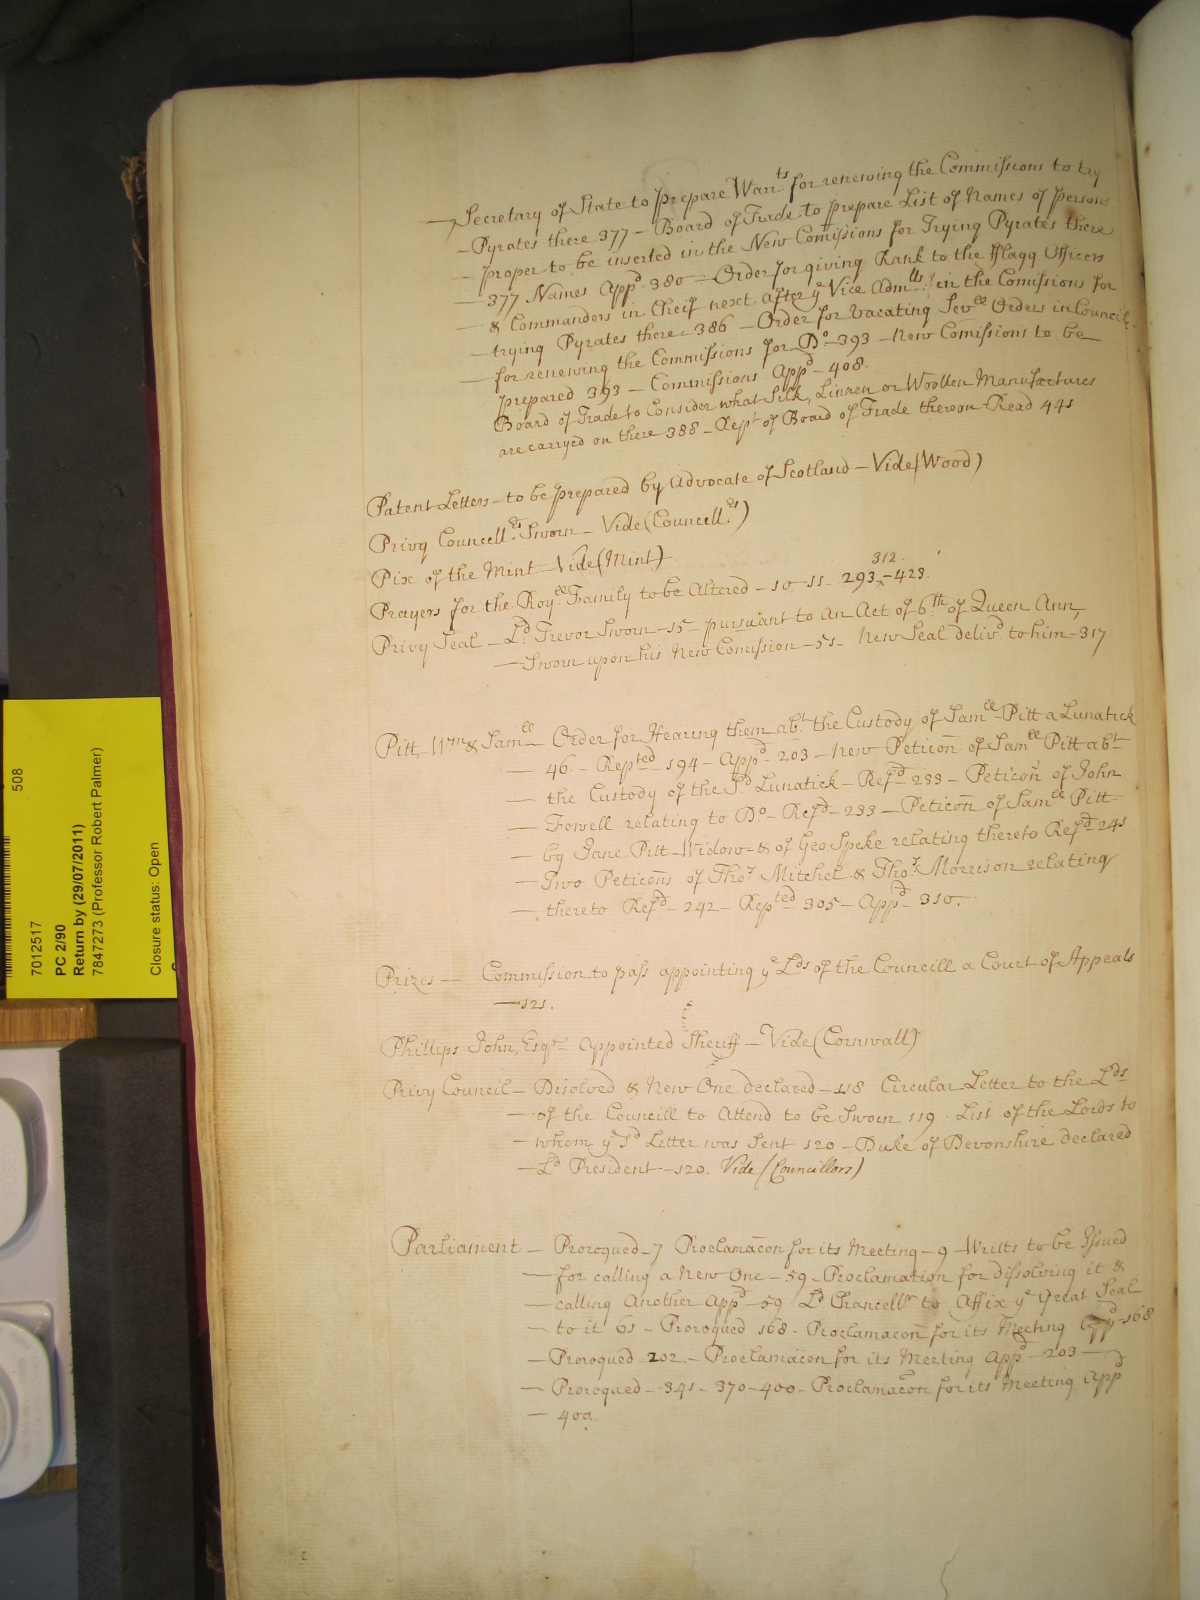 — Secretary of State to prepare Warrts for renewing the Commissions to try
— Pyrates there 377 — Board of Trade to prepare List of Names of persons
— proper to be inserted in the New Comissions for Trying Pyrates there
— 377 Names Appd 380 — Order for giving Rank to the Flagg Officers
— & Commanders in Cheif next after ye Vice Admlls in the Comissions for
— trying Pyrates there 386 — Order for vacating Sevll Orders in Council
— for renewing the Commissions for Do 393 — New Comissions to be
prepared 393 — Commissions Appd — 408.
Board of Trade to Consider what Silk, Linnen or Woollen Manufactures
are carryed on there 388 — Rept of Board of Trade thereon Read 441
Patent Letters — to be prepared by Advocate of Scotland — Vide (Wood)
Privy Councellrs Sworn — Vide (Councellrs)
Pix of the Mint — Vide (Mint)
312
Prayers for the Royll Family to be Altered — 10 - 11 - 293 - 423.
Privy Seal — Ld Trevor Sworn — 15 — pursuant to an Act of 6th of Queen Ann,
— Sworn upon his New Comission — 51 — New Seal delivd to him — 317
Pitt, Wm & Samll — Order for Hearing them abt the Custody of Samll Pitt a Lunatick
— 46 — Repted 194 — Appd 203 — New Peticon of Samll Pitt abt
— the Custody of the Sd Lunatick — Refd 233 — Peticon of John
— Fowell relating to Do — Refd 233 — Peticon of Samll Pitt
— by Jane Pitt Widow & of Geo Speke relating thereto Refd 241
— Two Peticons of Thos Mitchel & Thos Morrison relating
— thereto Refd 242 — Repted 305 — Appd 310.
Prizes — Commission to pass appointing ye Lds of the Councill a Court of Appeals
— 121.
Phillips John, Esqr — appointed Sheriff — Vide (Cornwall)
Privy Council — Disolved & New One declared — 118 Circular Letter to the Lds
— of the Councill to Attend to be Sworn 119 . List of the Lords to
— whom ye sd Letter was Sent 120 — Duke of Devonshire declared
— Ld President — 120. Vide (Councillors)
Parliament — Prorogued — 7 Proclamacon for its Meeting — 9 — Writts to be Issued
— for calling a New One — 59 — Proclamation for dissolving it &
— calling Another Appd — 59 Ld Chancellr to Affix ye Great Seal
— to it 61 — Prorogued 168 — Proclamacon for its Meeting Appd 168
— Prorogued 202 — Proclamacon for its Meeting Appd — 203 —
— Prorogued — 341 — 370 — 400 — Proclamacon for its Meeting Appd
— 400.
508
7012517
PC 2/90
Return by (29/07/2011)
7847273 (Professor Robert Palmer)
Closure status: Open